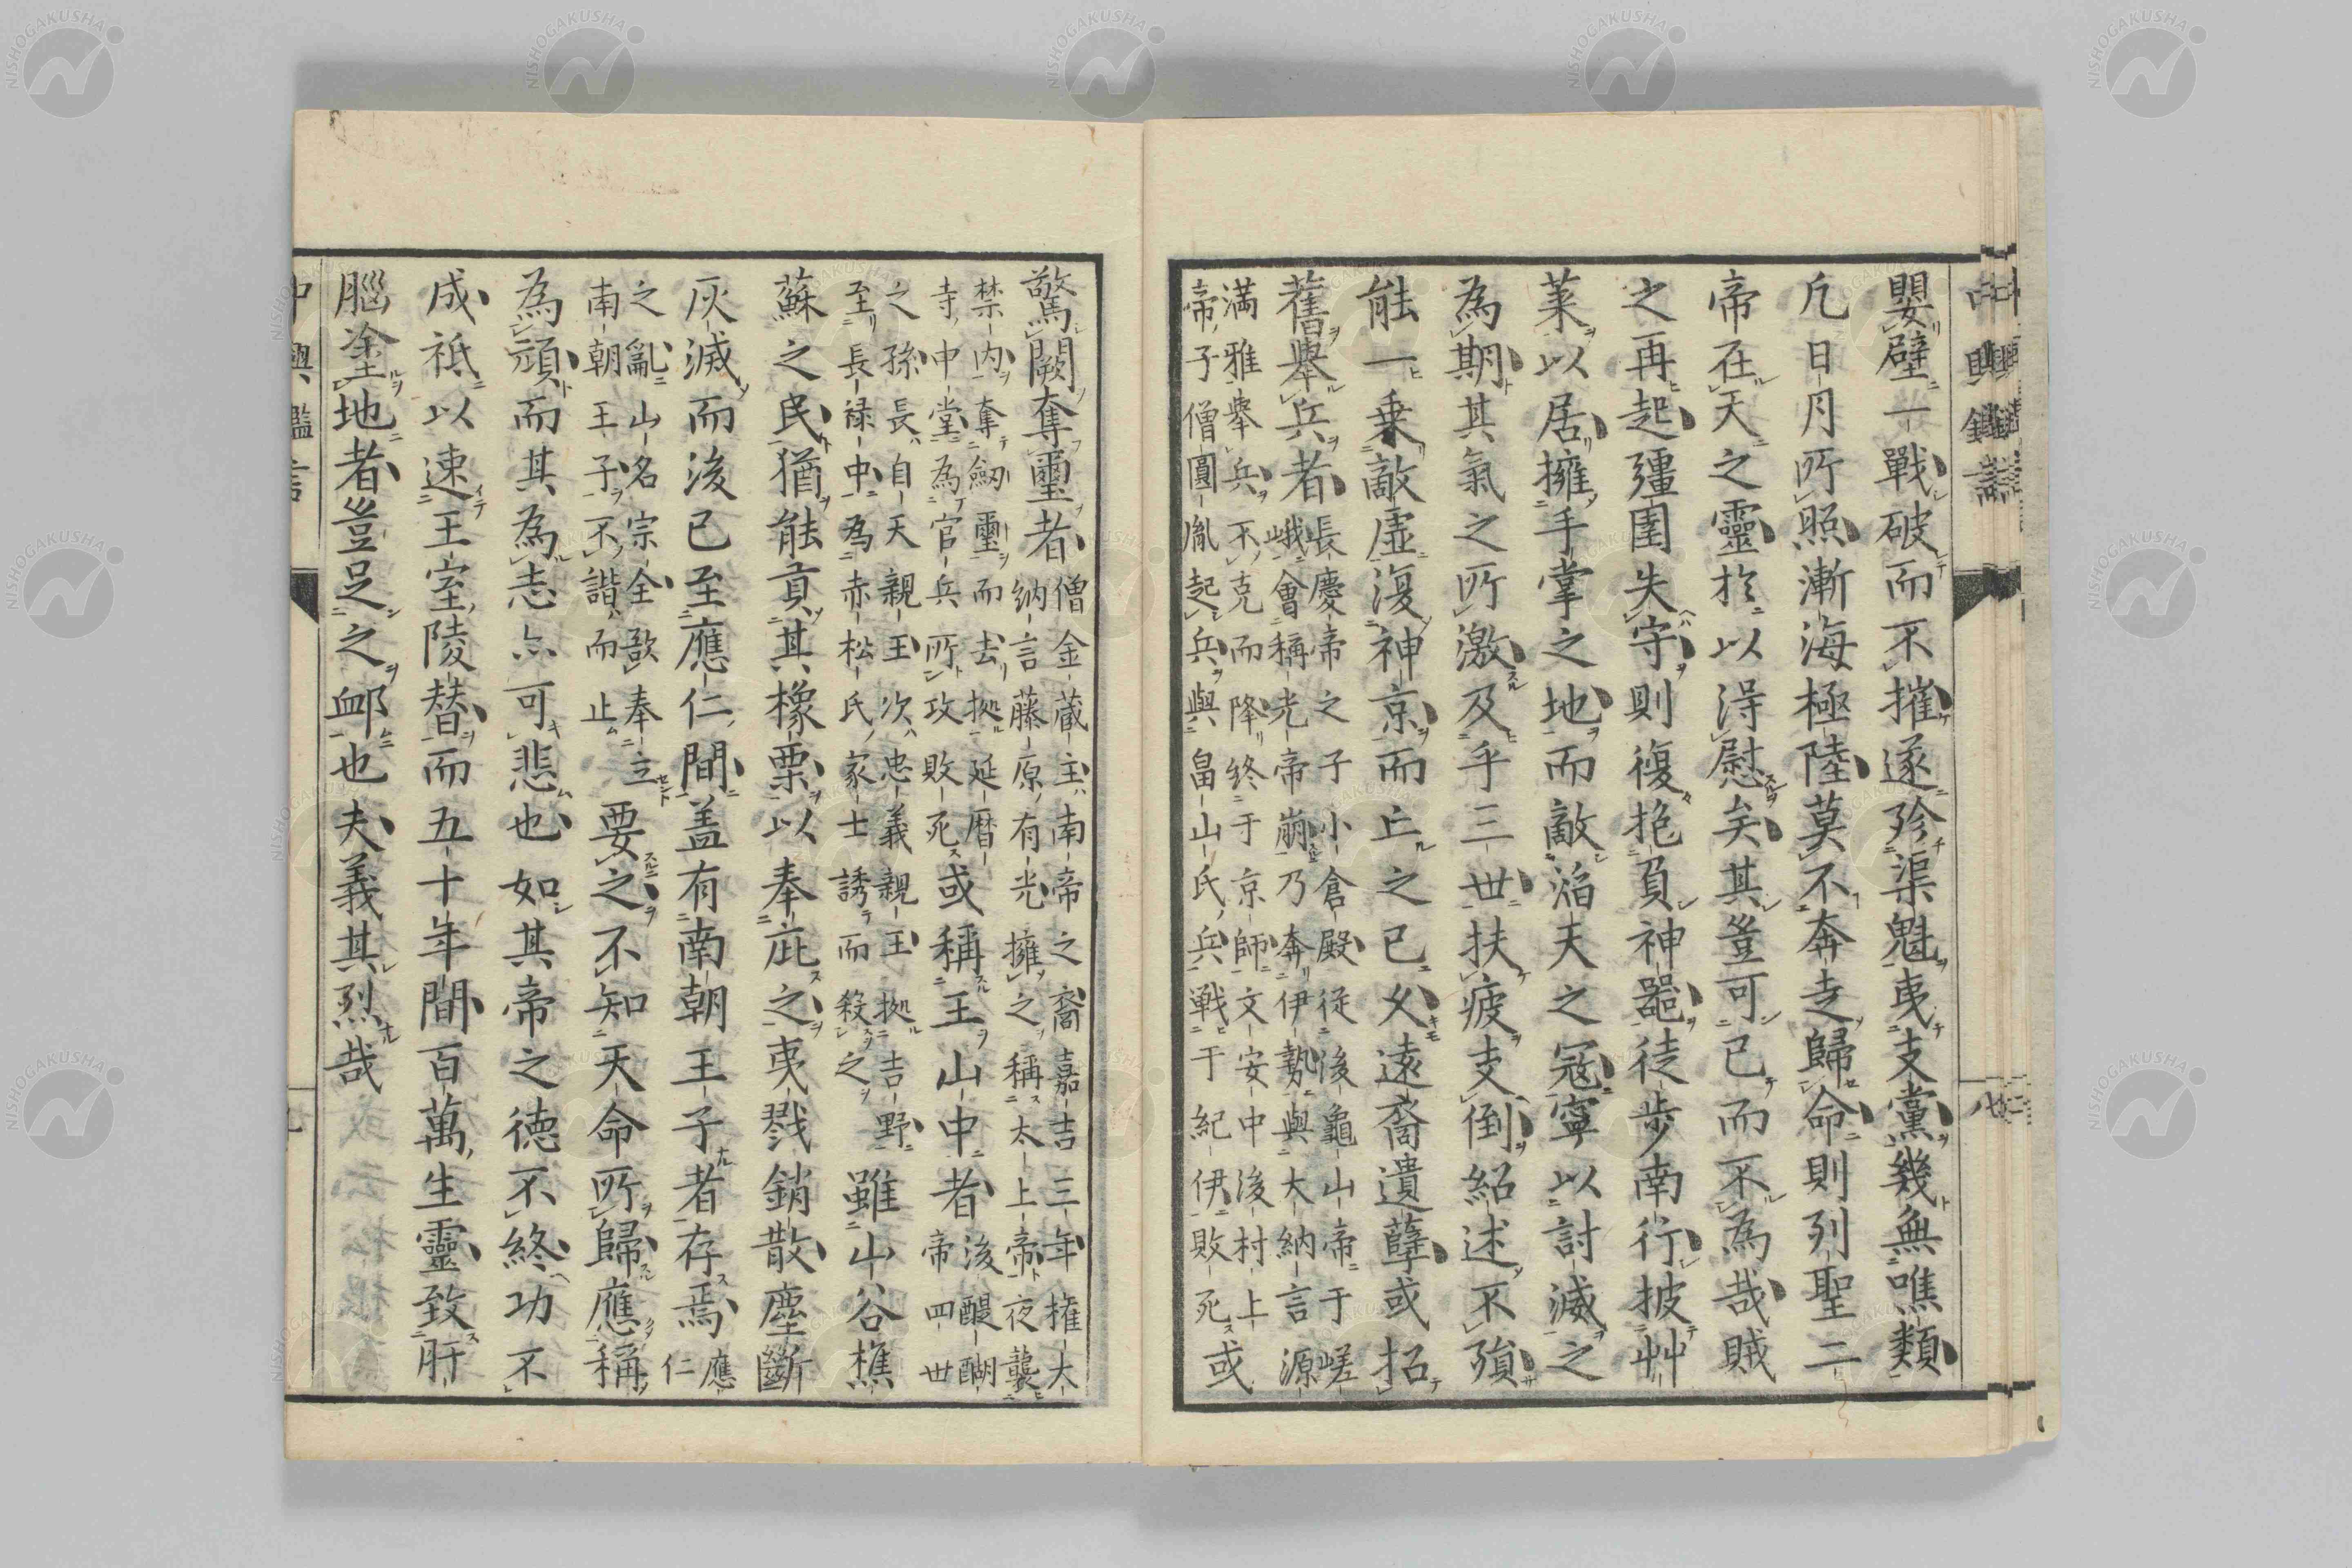 嬰壁一戰破而不摧遂殄渠魁夷支黨幾無噍類
凢日月所照漸海極陸莫不奔走歸命則列聖二
帝在天之靈於以得慰矣其豈可已而不為哉賊
之再起彊圉失守則復抱負神器徒步南行披艸
菜以居擁手掌之地而敵滔天之寇寧以討滅之
為期其氣之所激及乎三世扶疲支倒紹述不殞
能一乗敵虚復神京而止之已火遠裔遺孽或招
舊舉兵者長慶帝之子小倉殿從後龜山帝于嵯
峨會稱光帝崩乃奔伊勢與大納言源
満雅舉兵不克而降終于京師文安中後村上
帝子僧圓胤起兵與畠山氏兵戦于紀伊敗死或
驚闕奪璽者僧金蔵主南帝之裔嘉吉三年権大
納言藤原有光擁之稱太上帝夜襲
禁内奪劔璽而去拠延暦
寺中堂為官兵所攻敗死或稱王山中者後醍醐
帝四世
之孫長自天親王次忠義親王拠吉野
至長禄中為赤松氏家士誘而殺之雖山谷樵
蘇之民猶能貢其橡栗以奉庇之夷戮銷散塵斷
灰滅而後已至應仁間盖有南朝王子者存焉應
仁
之亂山名宗全歃奉立
南朝王子不諧而止要之不知天命所歸應稱
為頑而其為志亦可悲也如其帝之德不終功不
成祇以速王室陵替而五十年間百萬生靈致肝
腦塗地者豈足之䘏也夫義其烈哉
中興鑑言
中興鑑言
八